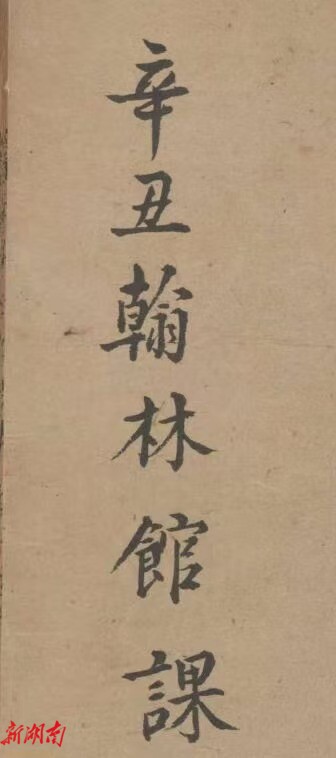 辛丑翰林館課
新湖南